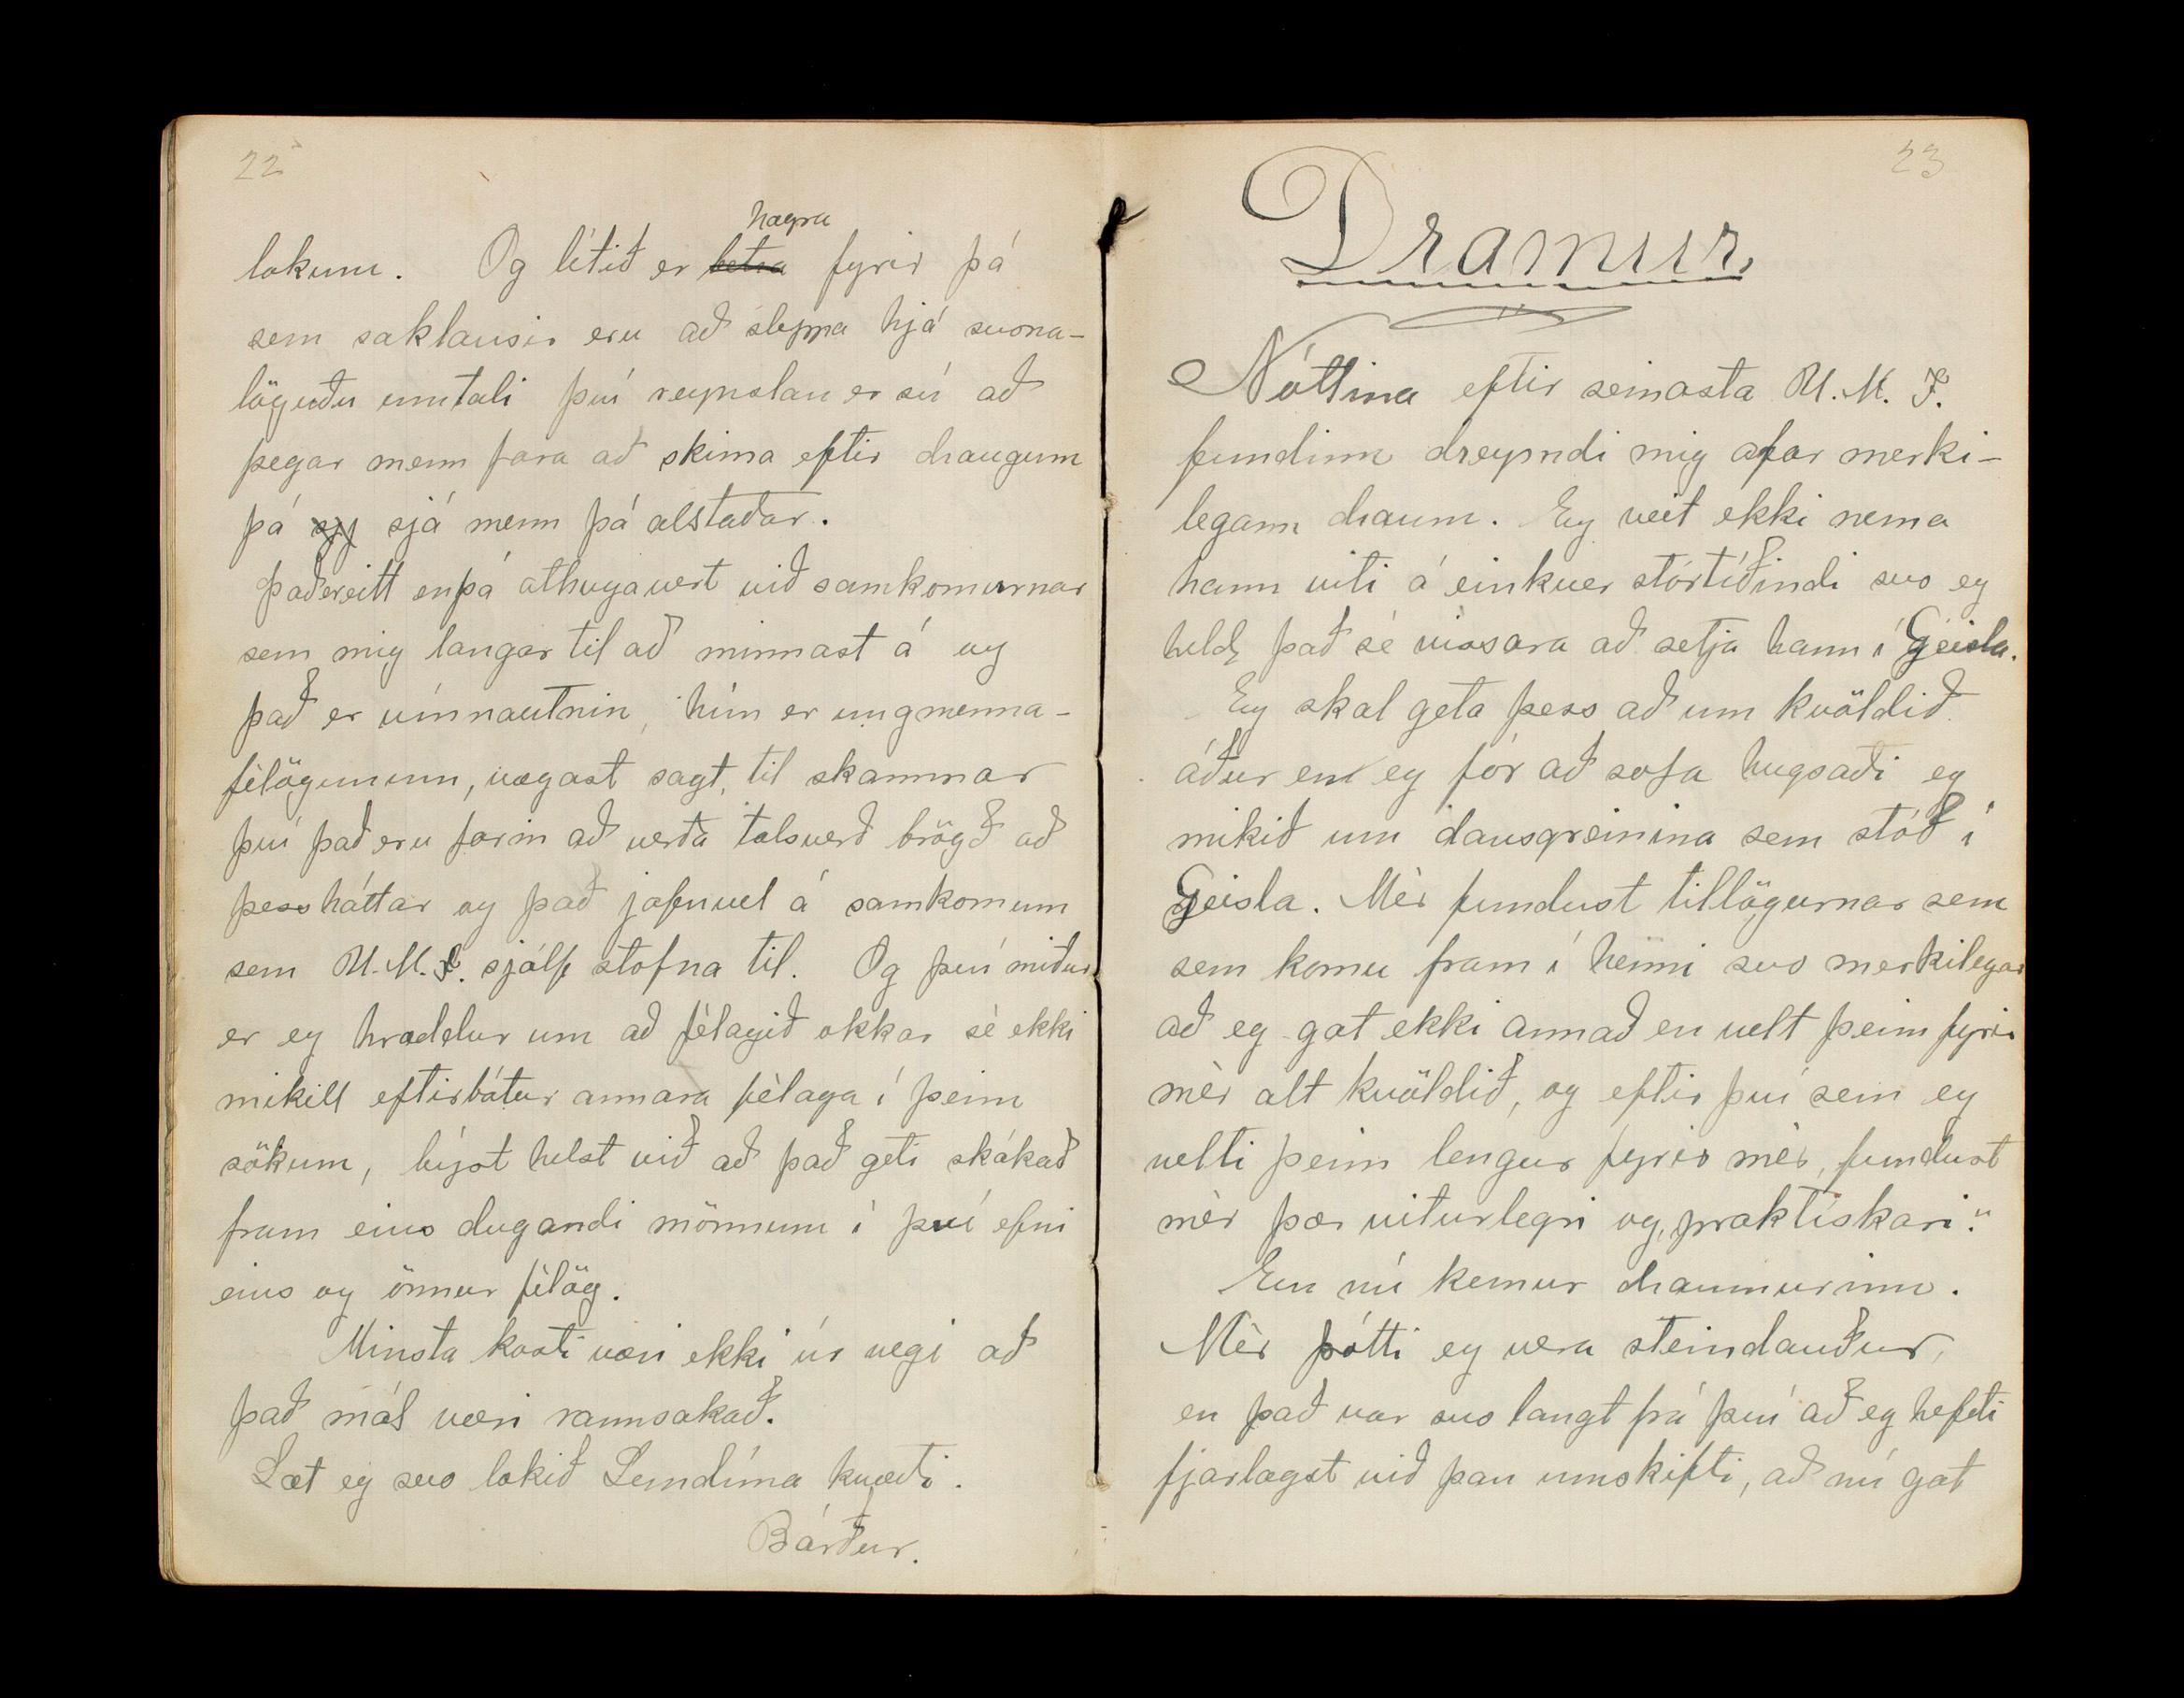 22
hægra
lokum. Og lítið er betra fyrir þá
sem saklausir eru að sleppa hjá svona-
löguðu umtali því reynslan er sú að
þegar menn fara að skima eftir draugum
þá sjá menn þá alstaðar.
Það er eitt enþá athugavert við samkomurnar
sem mig langar til að minnast á og
það er vínnautnin, hún er ungmenna-
félögunum, vægast sagt, til skammar
því það eru farin að verða talsverð brögð að
þess háttar og það jafnvel á samkomum
sem U.M.F. sjálf stofna til. Og því miður
er eg hræddur um að félagið okkar sé ekki
mikill eftirbátur annara félaga í þeim
sökum, býst helst við að það geti skákað
fram eins dugandi mönnum í því efni
eins og önnur félög.
Minsta kosti væri ekki úr vegi að
það mál væri rannsakað.
Læt eg svo lokið Lendína kvæði.
Bárður.
23
Draumur.
Nóttina eftir seinasta U.M.F.
fundinn dreymdi mig afar merki-
legann draum. Eg veit ekki nema
hann viti á einhver stórtíðindi svo eg
held það sé vissara að setja hann í Geisla.
Eg skal geta þess að um kvöldið
áður en eg fór að sofa hugsaði eg
mikið um dansgreinina sem stóð í
Geisla. Mér fundust tillögurnar sem
sem komu fram í henni svo merkilegar
að eg gat ekki annað en velt þeim fyrir
mér alt kvöldið, og eftir því sem eg
velti þeim lengur fyrir mér, fundust
mér þær viturlegri og „praktískari“.
En nú kemur draumurinn.
Mér þótti eg vera steindauður,
en það var svo langt frá því að eg hefði
fjarlægst við þau umskifti, að nú gat